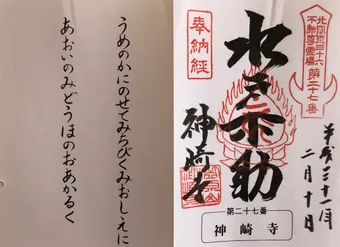 北関東三十六
不動尊霊場
第二十七番
奉納経
水子不動
神崎寺
平成三十一年
二月十日
第二十七番
神崎寺
うめのかにのせてみちびくみおしえに
あおいのみどうほのおあかるく